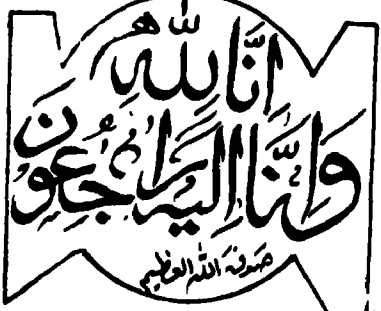 إنا لله
وإنا إليه راجعون
صدق الله العظيم